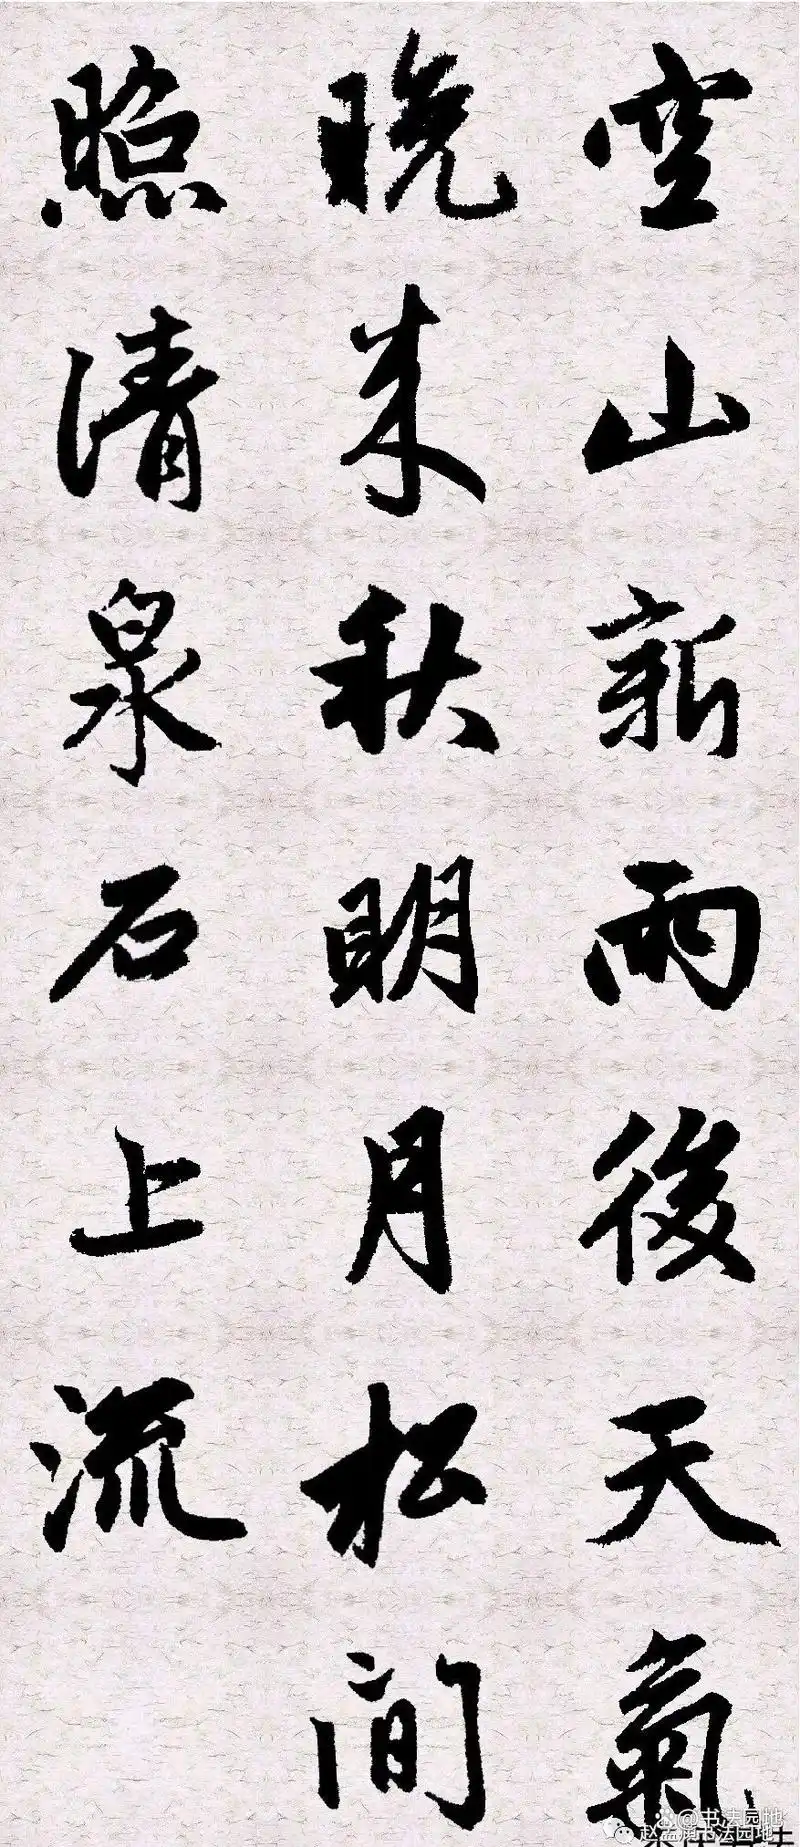 空山新雨後天氣
晚来秋明月松间
照清泉石上流
@书法园地
赵孟頫书法园地